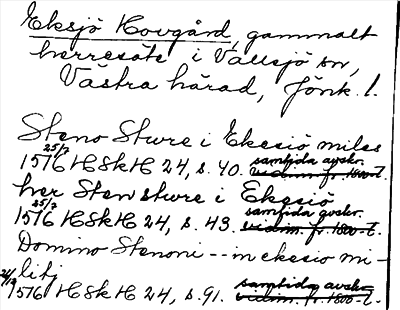 Eksjö Hovgård, gammalt
herresäte i Vallsjö sn,
Västra härad, Jönk. l.
Steno Sture i Ekesiö miles
25/7 1576 HSkH 24, s. 40. samtida avskr. vidim. fr. 1800-t.
her Sten sture i Ekesiö
25/7 1576 HSkH 24, s. 43. samtida avskr. vidim. fr. 1800-t.
Domino Stenoni -- in ekesio mi-
litj
1576 HSkH 24, s. 91. samtida avskr. vidim. fr. 1800-t.